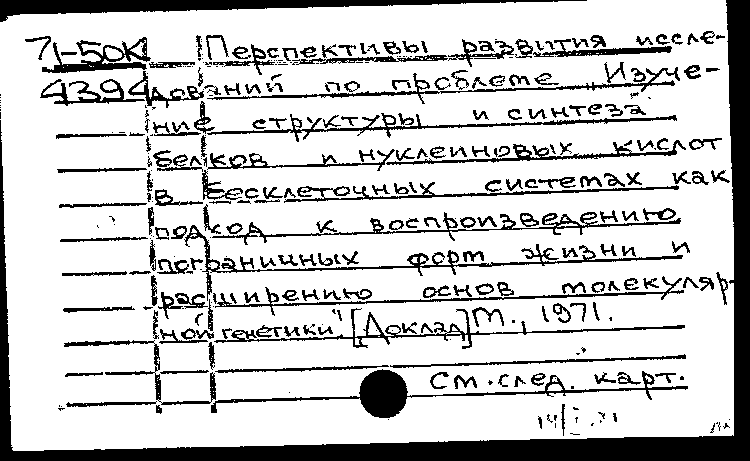 71-50К Перспективы развития иссле-
4394 дований по проблеме „Изуче-
ние структуры и синтеза
белков и нуклеиновых кислот
в бесклеточных системах как
подход к воспроизведению
пограничных форм жизни и
расширению основ молекуляр-
ной генетики" [Доклад] М., 1971.
См. след. карт.